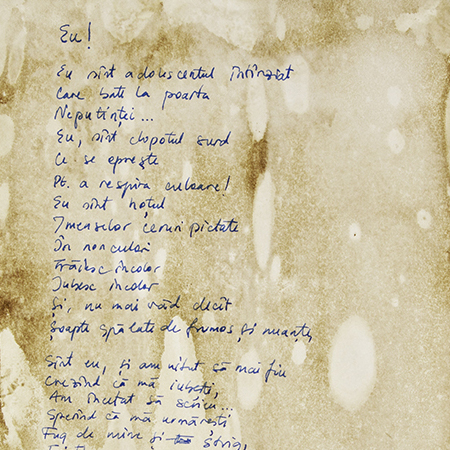 Eu!
Eu sînt adolescentul întîrziat
Care bate la poarta
Neputinței...
Eu, sînt clopotul surd
Ce se oprește
Pt. a respira culoare!
Eu sînt hoțul
Imenselor ceruri pictate
În non culori
Trăiesc incolor
Iubesc incolor
Și, nu mai văd decît
Șoapte spălate de frumos și nuanțe,
Sînt eu, și am uitat să mai fiu
Crezînd că mă iubești,
Am încetat să scriu...
Sperînd că mă urmărești
Fug de mine și strig,